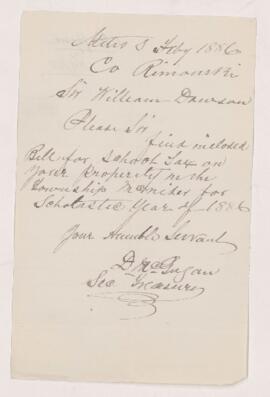 Metis 8 Feby 1886
Co Rimouski
Sir William Dawson
Please Sir
find inclosed
Bill for School Tax on
your property in the
Township McNider for
Scholastic Year of 1886
Your Humble Servant
D McGugan
Sec Treasurer